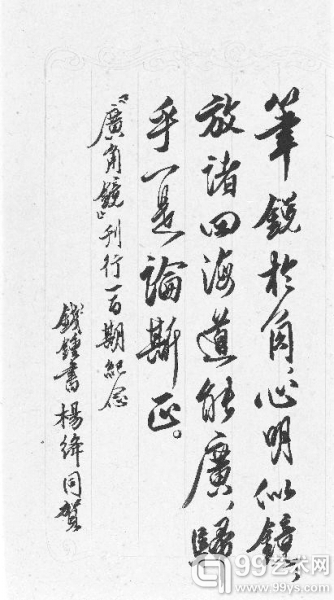 筆銳於角，心明似鏡，
放諸四海道能廣，歸
乎一是論斯正。
『廣角鏡』刊行一百期紀念
錢鍾書 楊絳同賀
99艺术网
www.99ys.com